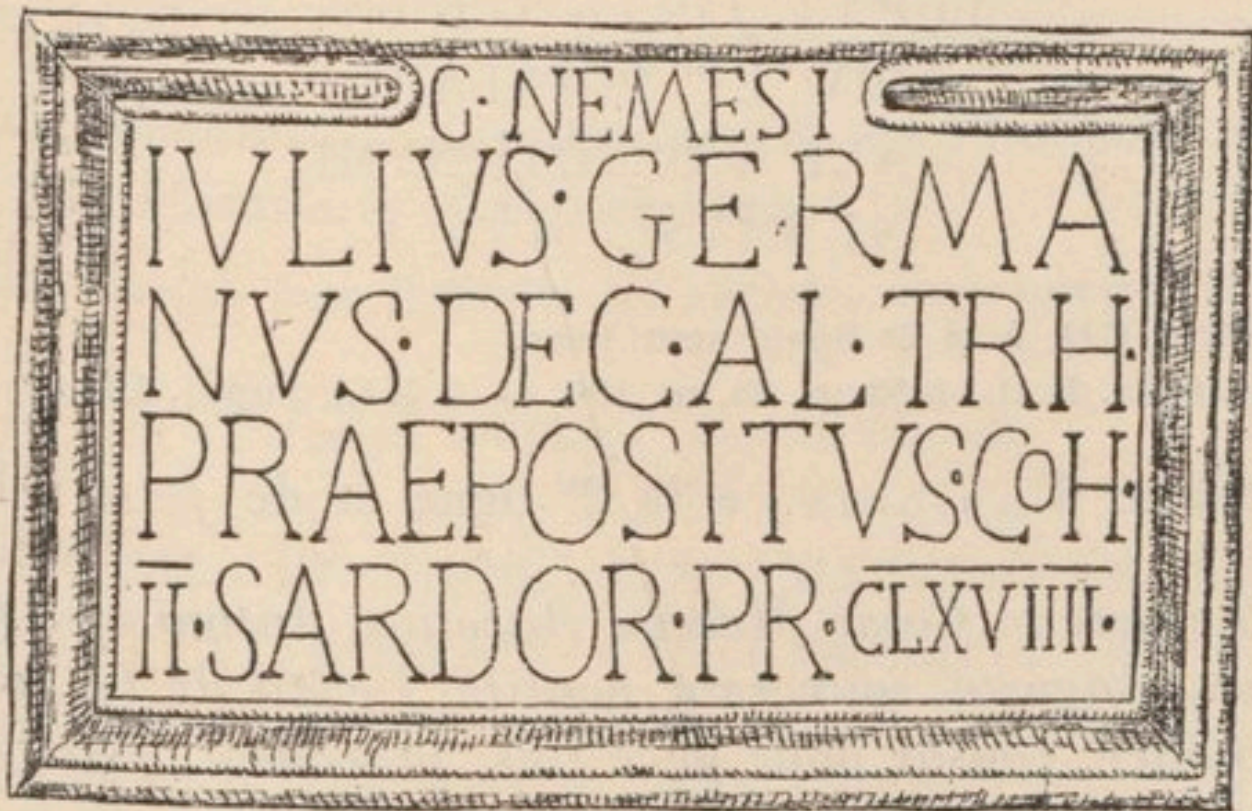 G· NEMESI
IVLIVS· GERMA
NVS· DEC· AL· TRH·
PRAEPOSITVS· COH·
II· SARDOR· PR· CLXVIIII·